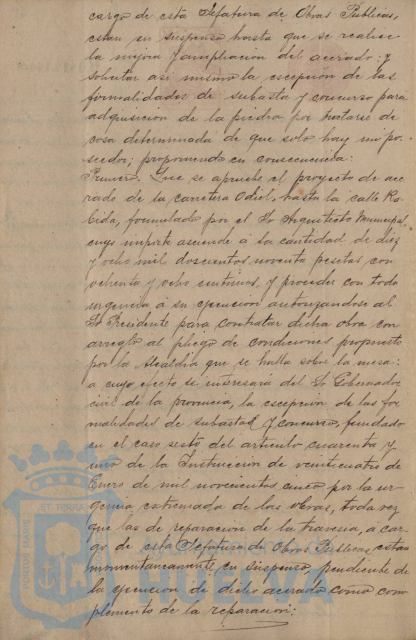 cargo de esta Jefatura de Obras Publicas,
estan en suspenso hasta que se realice
la mejora y ampliacion del acerado: y
solicitar asi mismo la escepcion de las
formalidades de subasta y concurso para
adquisicion de la piedra por tratarse de
cosa determinada de que solo hay un po-
seedor; proponiendo en consecuencia:
Primero. Que se apruebe el proyecto de ace-
rado de la carretera Odiel, hasta la calle Ra-
bida, formulado por el Sr Arquitecto Municipal,
cuyo importe asciende a la cantidad de diez
y ocho mil doscientos noventa pesetas con
ochenta y ocho centimos, y proceder con toda
urgencia a su ejecucion autorizandose al
Sr Presidente para contratar dicha obra con
arreglo al pliego de condiciones propuesto
por la Alcaldia que se halla sobre la mesa:
a cuyo efecto se interesará del Sr Gobernador
civil de la provincia, la escepcion de las for-
malidades de subasta y concurso, fundado
en el caso sesto del articulo cuarenta y
uno de la Instruccion de veinticuatro de
Enero de mil novecientos cinco por la ur-
gencia estremada de las obras, toda vez
que las de reparacion de la travesia, a car-
go de esta Jefatura de Obras Publicas, estan
momentaneamente en suspenso, pendiente de
la ejecucion de dicho acerado como com-
plemento de la reparacion:
PORTUS MARIS
ET TERRAE
HUELVA